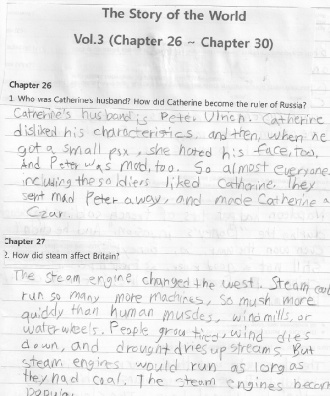 The Story of the World
Vol.3 (Chapter 26 ~ Chapter 30)
Chapter 26
1. Who was Catherine's husband? How did Catherine become the ruler of Russia?
Catherine's husband is Peter Ulrich. Catherine
disliked his characteristics, and then, when he
got a small pox, she hated his face, too.
And Peter was mad, too. So almost everyone,
including the soldiers liked Catherine. They
sent mad Peter away, and made Catherine a
Czar.
Chapter 27
2. How did steam affect Britain?
The Steam engine changed the west. Steam could
run so many more machines, so mush more
quickly than human muscles, windmills, or
waterwheels. People grow tired, wind dies
down, and drought dries up streams. But
steam engines would run as long as
they had coal. The steam engines become
popular